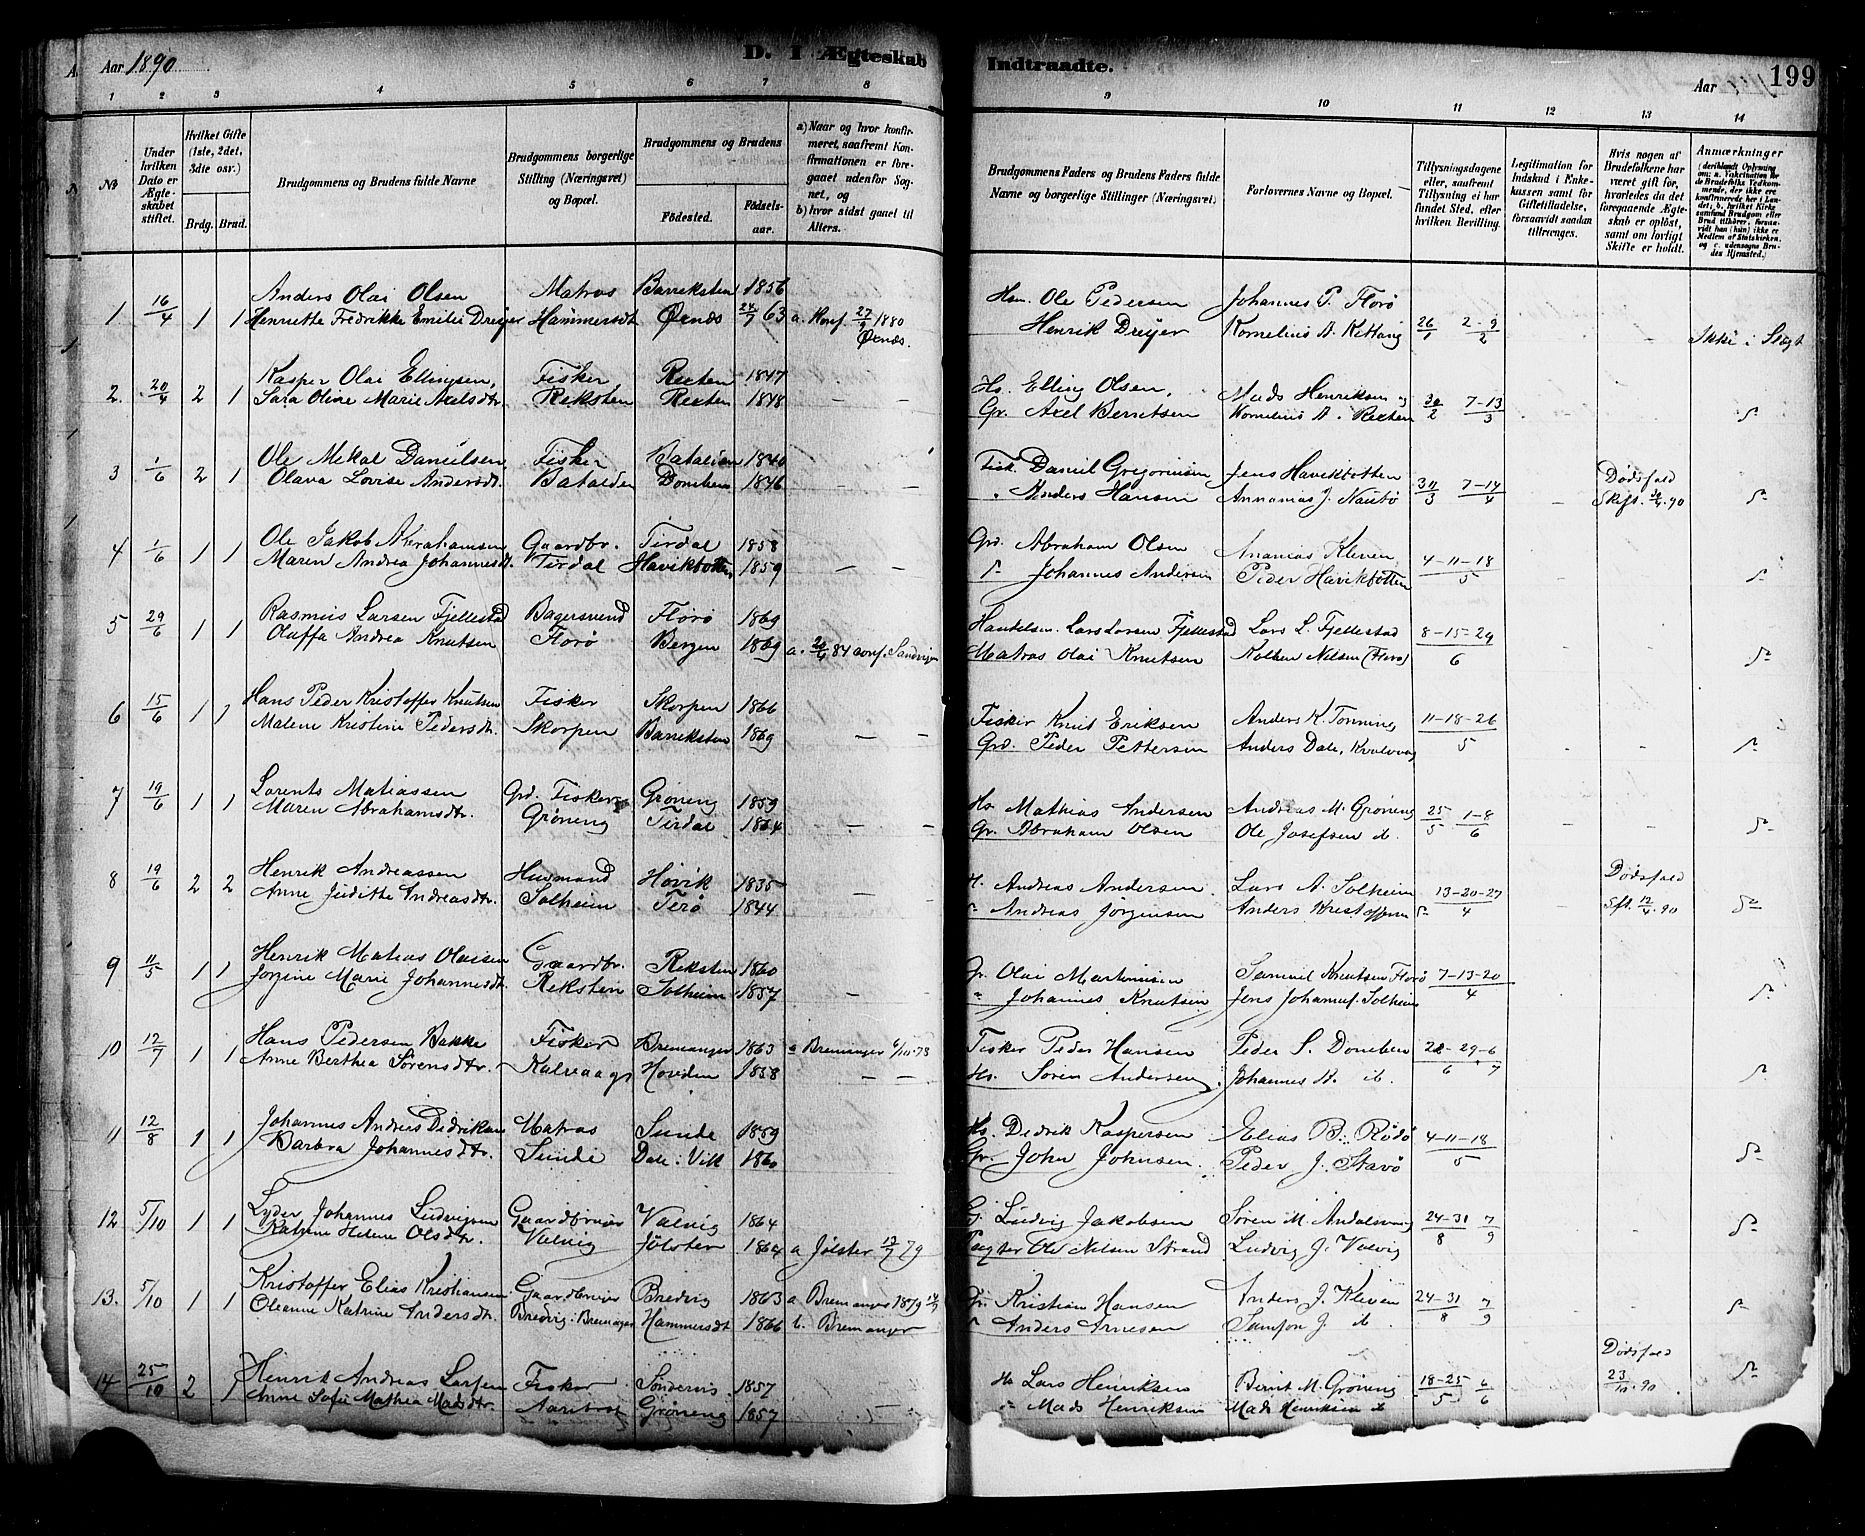 Aar 1890
D. I Ægteskab
Indtraadte.
Aar
199
1 2 3 4 5 6 7 8 9 10 11 12 13 14
No
Under hvilken Dato er Ægteskabet stiftet.
Hvilket Gifte (1ste, 2det, 3die osv.)
Brdg. Brud.
Brudgommens og Brudens fulde Navne
Brudgommens borgerlige Stilling (Næringsvei) og Bopæl.
Brudgommens og Brudens
Fødested.
Fødselsaar.
a) Naar og hvor konfirmeret, saafremt Konfirmationen er foregaaet udenfor Sognet, og
b) hvor sidst gaaet til Alters.
Brudgommens Faders og Brudens Faders fulde Navne og borgerlige Stillinger (Næringsvei)
Forlovernes Navne og Bopæl.
Tillysningsdagene eller, saafremt Tillysning ei har fundet Sted, efter hvilken Bevilling.
Legitimation for Indskud i Enkekassen samt for Giftetilladelse, forsaavidt saadan tiltrænges.
Hvis nogen af Brudefolkene har været gift, hvorledes da det foregaaende Ægteskab er opløst, samt om lovligt Skifte er holdt.
Anmærkninger
1 16/4 1 1 Anders Olai Olsen Matros Barreksten 1856 Hsm. Ole Pedersen Johannes P. Florø
Henriette Fredrikke Emilie Dreyer Hammersdt Øxnæs 24/7 63 a. Konf. 27/9 1880 Øxnæs. Henrik Dreyer Kornelius A. Rettang 26/1 2-9/2 Ikke i Slægt
2. 20/4 2 1 Kasper Olai Ellingsen, Fisker Recten 1847 Hs. Elling Olsen, Mads Henriksen og
Sara Oline Marie Axelsdtr. Reksten Recten 1848 Gr. Axel Berntsen Kornelius A. Recten 30/2 7-13/3
3 1/6 2 1 Ole Mekal Danielsen Fisker Batalden 1840 Fisk. Daniel Gregoriusen Jens Havikbotten Dødsfald
Olava Lovise Andersdt. Batalden Domben 1846 Anders Hansen Annanias J. Nautø 30/3 7-14/4 Skift. 90
4 1/6 1 1 Ole Jakob Abrahamsen Gaardbr. Tirdal 1858 Grd. Abraham Olsen Ananias Kleven
Maren Andrea Johannesdt. Tirdal Havikbotten 1859 Johannes Andersen Peder Havikbotten 4-11-18/5
5 29/6 1 1 Rasmus Larsen Fjellestad Bagersvend Florø 1869 Handelsm. Lars Larsen Fjellestad Lars L. Fjellestad
Oluffa Andrea Knutsen Florø Bergen 1869 a. 84 conf. Sandvigen Matros Olai Knutsen Kolben Nilsen (Florø) 8-15-29/6
6 15/6 1 1 Hans Peder Kristoffer Knutsen Fisker Skorpen 1866 Fisker Knut Eriksen Anders K. Tonning
Malene Kristine Pedersdtr. Skorpen Barreksten 1869 Grd. Peder Pettersen Anders Dale, Kvalvaag 11-18-26/5
7 19/6 1 1 Lorents Matiassen Grd. Fisker Grøning 1859 Hs. Mathias Andersen Andreas M. Grøning
Maren Abrahamsdtr. Grøning Tirdal 1864 Gr. Abraham Olsen Ole Josefsen ib. 25/5 1-8/6
8 19/6 2 2 Henrik Andreassen Husmand Høvik 1835 H. Andreas Andersen Lars A. Solheim Dødsfald
Anne Judithe Andreasdtr. Solheim Terø 1844 Andreas Jørgensen Anders Kristoffersen 13-20-27/4 Sft. 12/4.90
9 11/5 1 1 Henrik Matias Olaisen Gaardbr. Reksten 1860 Gr. Olai Martinusen Samuel Knutsen Florø
Jorgine Marie Johannesdt. Reksten Solheim 1857 Johannes Knutsen Jens Johannes. Solheim 7-13-20/4
10 12/7 1 1 Hans Pedersen Bakke Fisker Bremanger 1863 a Bremanger 6/10.78 Fisker Peder Hansen Peder S. Domben
Anne Berthea Sørensdtr. Kalvaag Hovden 1858 Hs. Søren Andersen Johannes A. ib. 22-29/6-6/7
11 12/8 1 1 Johannes Andreas Didriksen Matros Sunde 1859 Hs. Dedrik Kaspersen Elias B. Rødø
Barbra Johannesdtr. Sunde Dale i Vik 1860 Gr. John Johnsen Peder J. Stavø 4-11-18/5
12 5/10 1 1 Lyder Johannes Ludvigsen Gaardbruger Valvig 1864 G. Ludvig Jakobsen Søren M. Andalsvaag
Katrine Helene Olsdtr. Valvig Jølster 1864 a Jølster 13/7 79 Pagter Ole Nilsen Strand Ludvig J. Valvig 24-31/8 7/9
13. 5/10 1 1 Kristoffer Elias Kristiansen Gaardbruger Bredvig 1863 a Bremanger 1879 Gr. Kristian Hansen Anders J. Kleven
Oleanne Katrine Andersdtr. Bredvig i Bremanger Hammersdt 1866 b. Bremanger Anders Arnesen Samson J. ib. 24-31/8 7/9
14 25/10 2 1 Henrik Andreas Larsen Fisker Søndervis 1857 Hs Lars Henriksen Bernt M. Grøning Dødsfald
Anne Sofie Mathea Madsdtr. Aarebrot Grøning 1857 Mads Henriksen Mads Henriksen ib 18-25/5 6/6 23/10.90